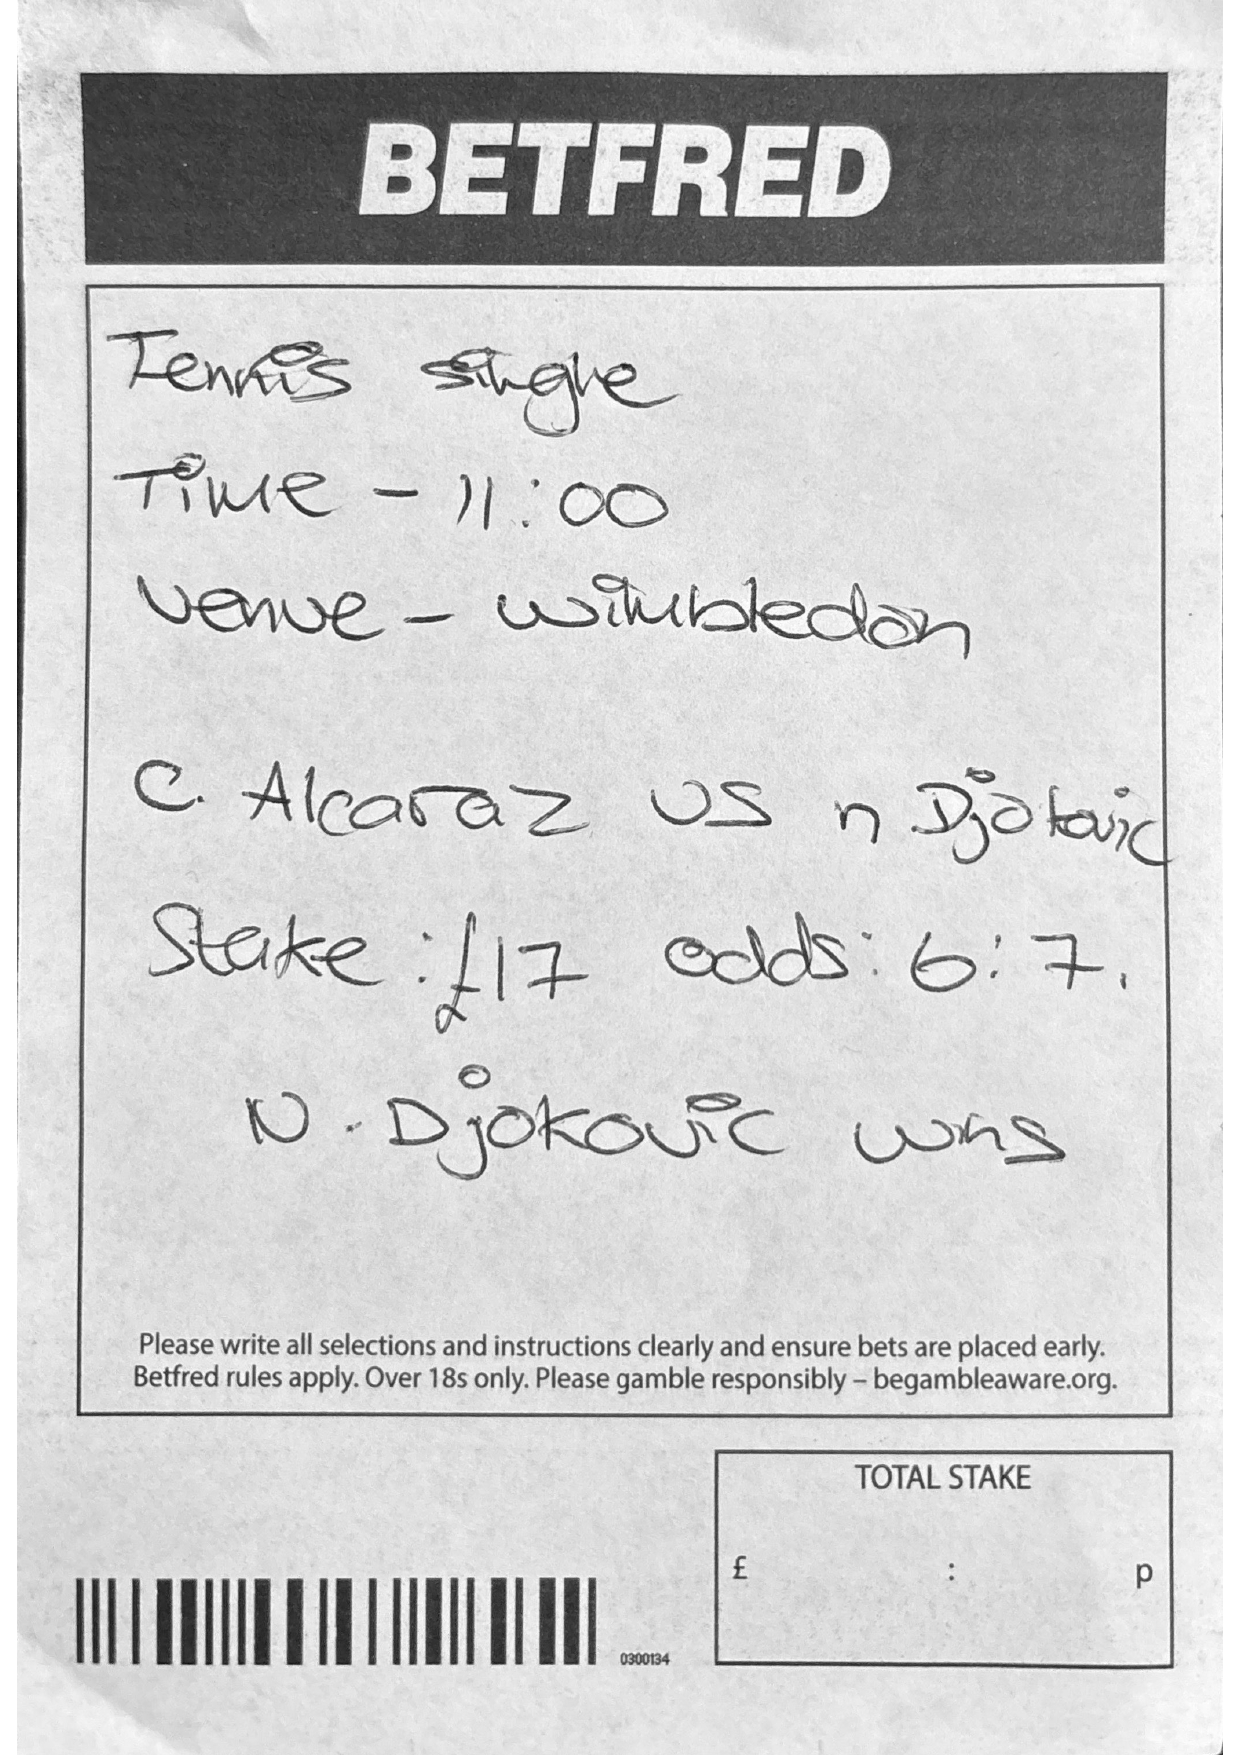 BETFRED
Tennis single
Time - 11:00
Venue - Wimbledon
C. Alcaraz VS n Djokovic
Stake : £17 odds: 6:7.
N. Djokovic wins
Please write all selections and instructions clearly and ensure bets are placed early.
Betfred rules apply. Over 18s only. Please gamble responsibly – begambleaware.org.
TOTAL STAKE
£ : p
0300134